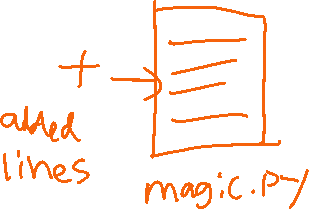 +
added
lines
magic.py